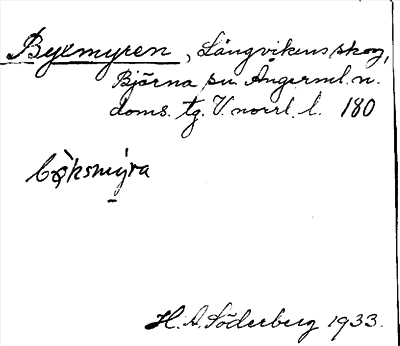 Byxmyren, Långvikens skog,
Björna sn. Ångerml. n.
doms. tg. V. norrl. l. 180
bò̭ksmýra
H. A. Söderberg 1933.